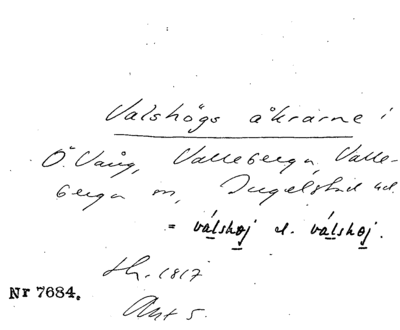 Valshögs åkrarne i
Ö. Vång, Valleberga, Valle-
berga sn, Ingelstad hd.
= válshøj el. válshøj.
Sk. 1817
Nr 7684.
Akt 5.